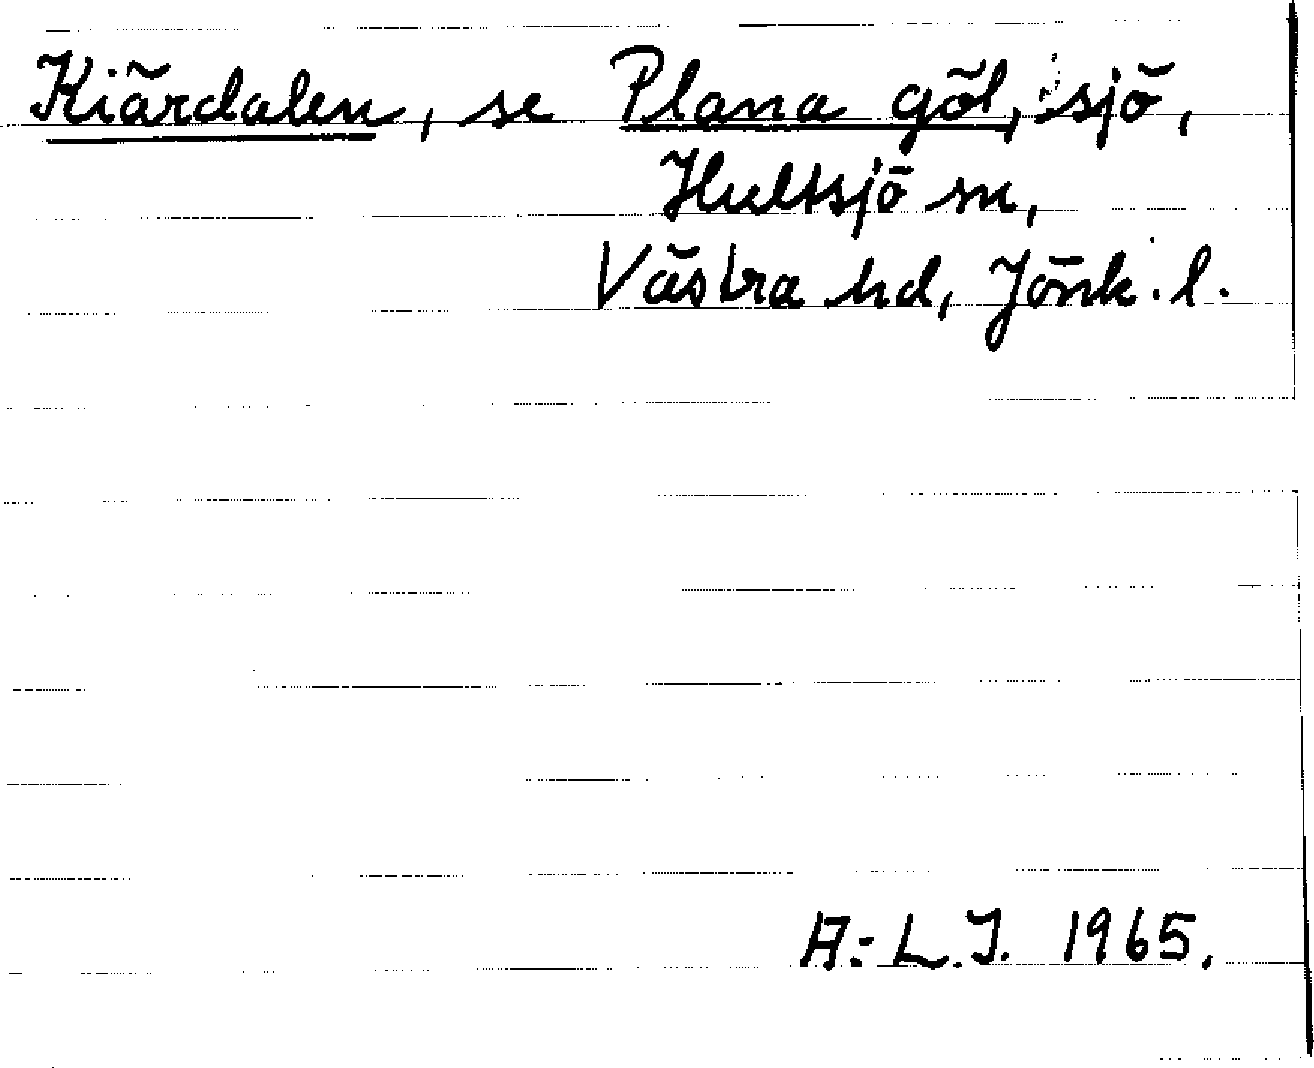 Kiärdalen, se Plana göl, sjö,
Hultsjö sn,
Västra hd, Jönk. l.
A.-L.J. 1965.